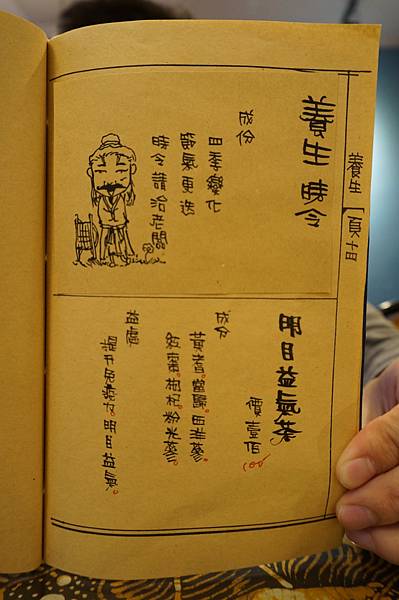 養生 頁十四
養生 時令
成份
四季變化
節氣更迭
時令請洽老闆
明目益氣茶
價壹佰
100
成分
黃耆。當歸。西洋蔘。
紅棗。枸杞。粉光蔘。
益處
提升免疫力。明目益氣。